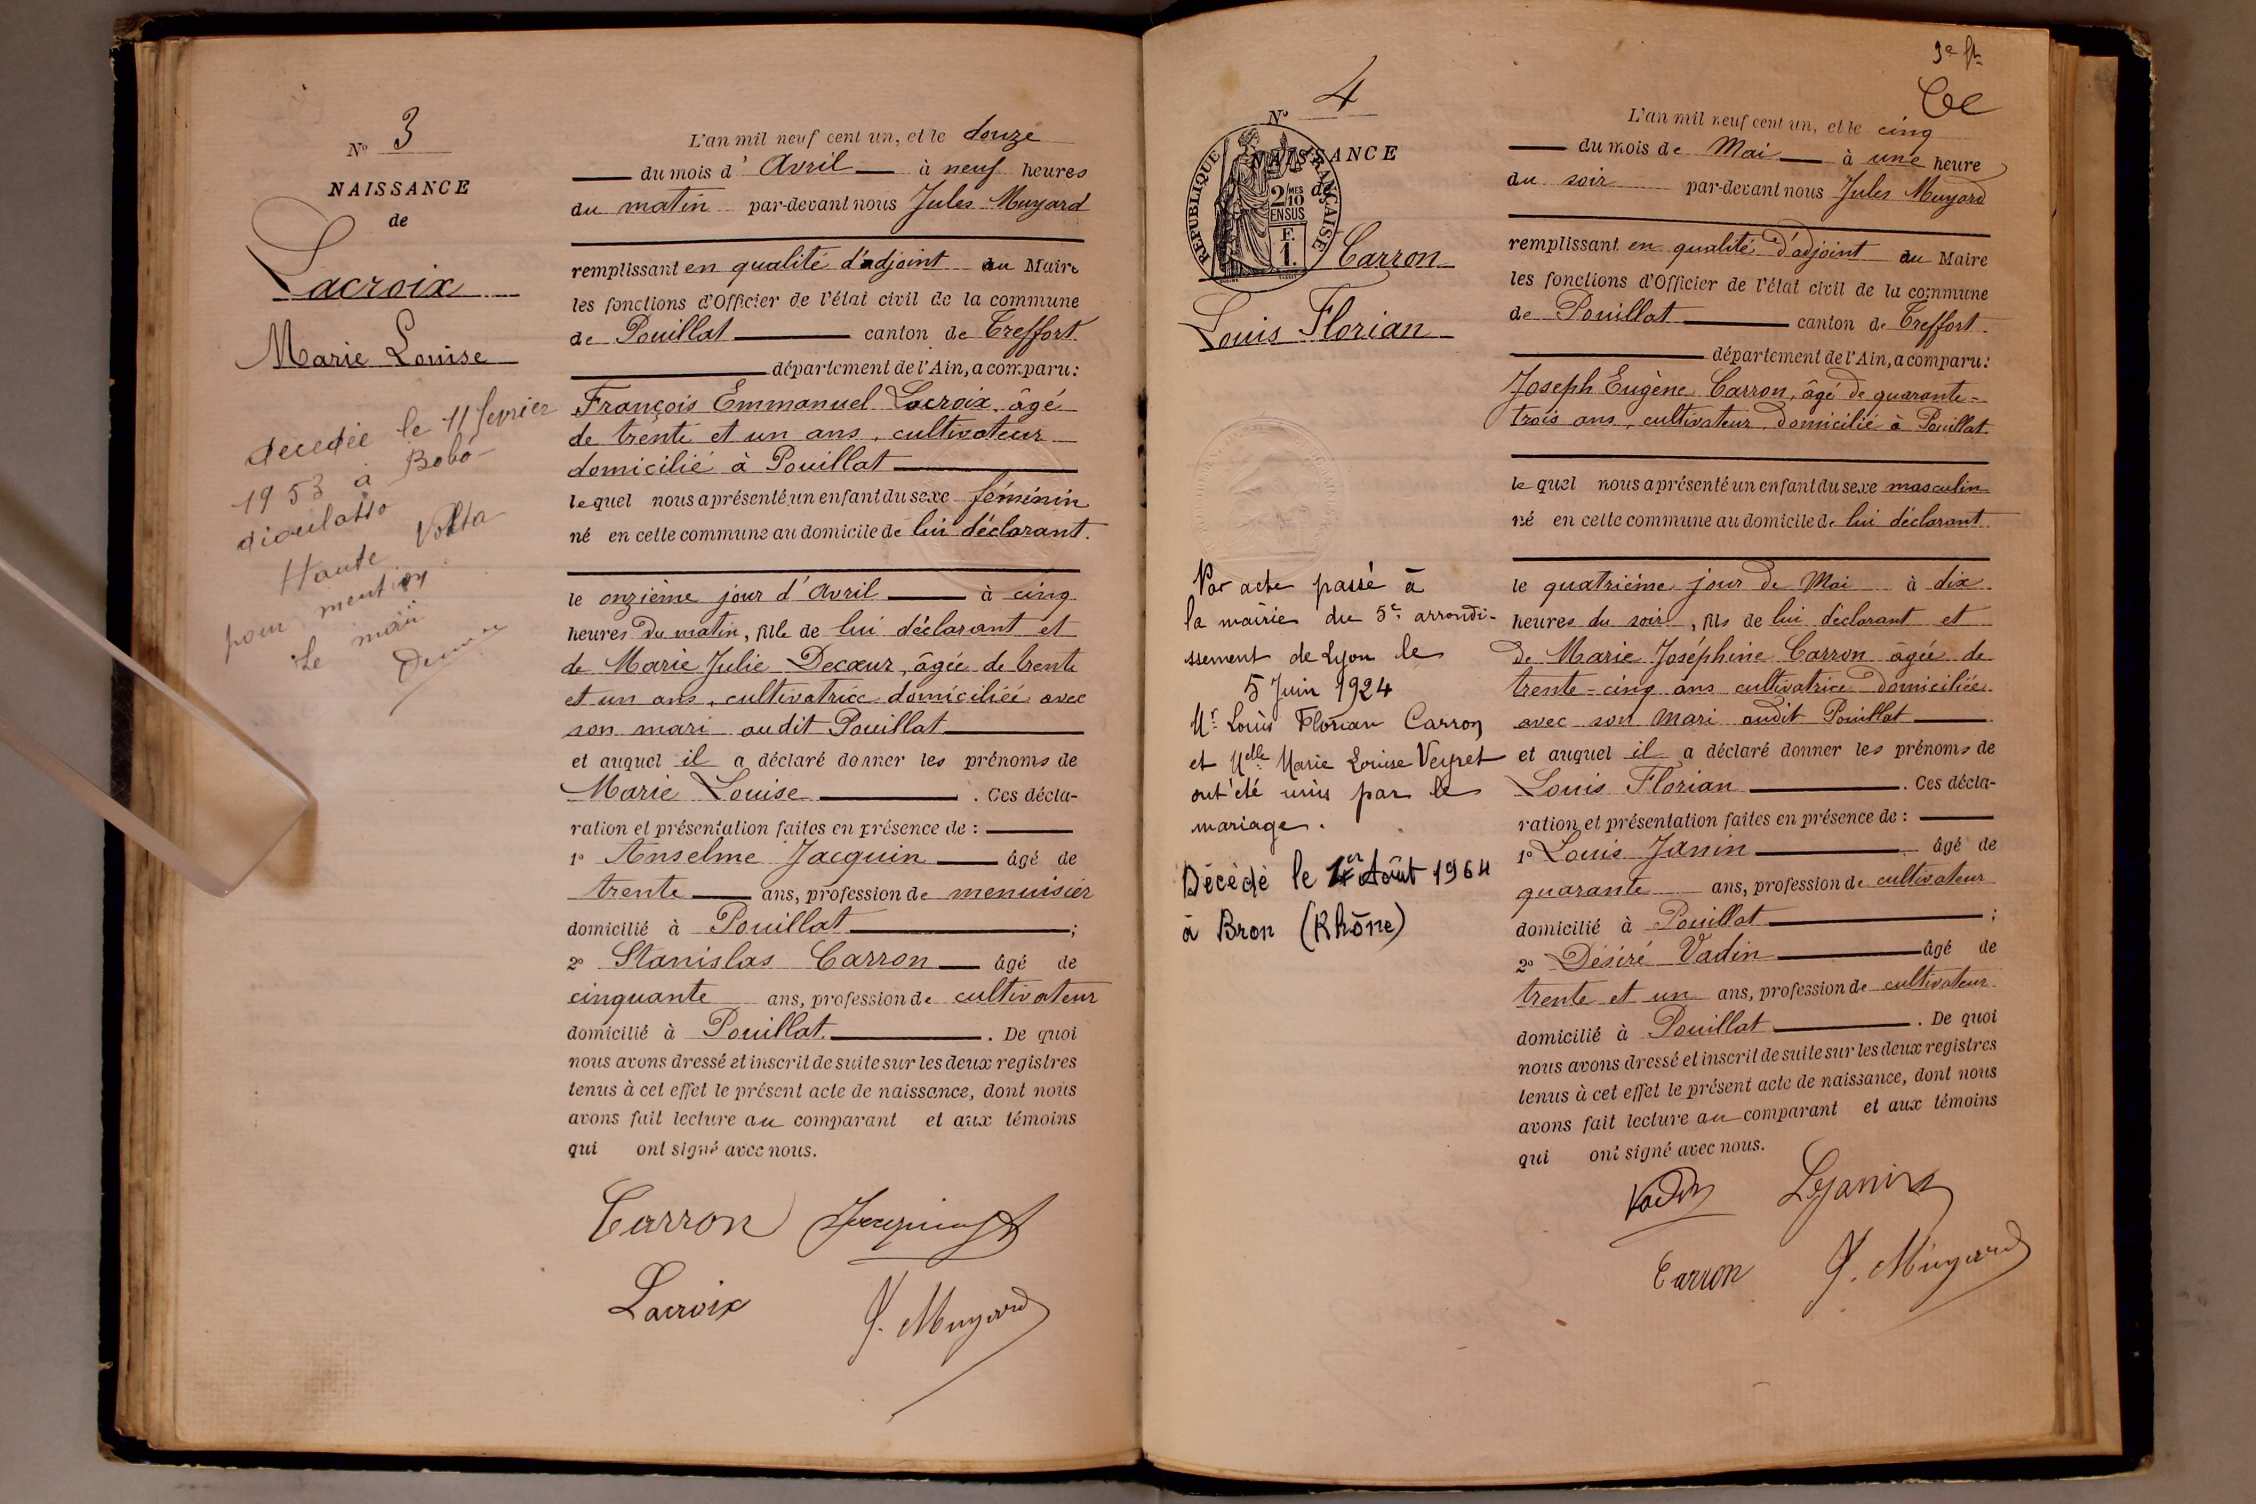 Nº 3
NAISSANCE
de
Lacroix
Marie Louise
decedée le 11 fevrier
1953 à Bobo-
dioulasso
Haute Volta
pour mention
Le maire
L'an mil neuf cent un, et le douze
du mois d'Avril à neuf heures
du matin par-devant nous Jules Muyard
remplissant en qualité d'adjoint au Maire
les fonctions d'Officier de l'état civil de la commune
de Pouillat canton de Treffort
département de l'Ain, a comparu:
François Emmanuel Lacroix, âgé
de trente et un ans, cultivateur
domicilié à Pouillat
lequel nous a présenté un enfant du sexe féminin
né en cette commune au domicile de lui déclarant.
le onzième jour d'Avril à cinq
heures du matin, fille de lui déclarant et
de Marie Julie Decœur, âgée de trente
et un ans, cultivatrice domiciliée avec
son mari audit Pouillat
et auquel il a déclaré donner les prénoms de
Marie Louise. Ces décla-
ration et présentation faites en présence de :
1º Anselme Jacquin âgé de
trente ans, profession de menuisier
domicilié à Pouillat ;
2º Stanislas Carron âgé de
cinquante ans, profession de cultivateur
domicilié à Pouillat. De quoi
nous avons dressé et inscrit de suite sur les deux registres
tenus à cet effet le présent acte de naissance, dont nous
avons fait lecture au comparant et aux témoins
qui ont signé avec nous.
Carron Jacquin
Lacroix J. Muyard
Nº 4
NAISSANCE
de
REPUBLIQUE FRANÇAISE
2 MES
/10
EN SUS
F.
1.
Carron
Louis Florian
Par acte passé à
la mairie du 5e arrondi-
ssement de Lyon le
5 Juin 1924
Mr Louis Florian Carron
et Melle Marie Louise Veyret
ont été unis par le
mariage.
Décédé le 1er Août 1964
à Bron (Rhône)
L'an mil neuf cent un, et le cinq
du mois de Mai à une heure
du soir par-devant nous Jules Muyard
remplissant en qualité d'adjoint au Maire
les fonctions d'Officier de l'état civil de la commune
de Pouillat canton de Treffort
département de l'Ain, a comparu:
Joseph Eugène Carron, âgé de quarante=
trois ans, cultivateur, domicilié à Pouillat
lequel nous a présenté un enfant du sexe masculin
né en cette commune au domicile de lui déclarant
le quatrième jour de Mai à dix
heures du soir, fils de lui déclarant et
de Marie Joséphine Carron âgée de
trente=cinq ans cultivatrice domiciliée
avec son mari audit Pouillat
et auquel il a déclaré donner les prénoms de
Louis Florian. Ces décla-
ration et présentation faites en présence de :
1º Louis Janin âgé de
quarante ans, profession de cultivateur
domicilié à Pouillat ;
2º Désiré Vadin âgé de
trente et un ans, profession de cultivateur
domicilié à Pouillat. De quoi
nous avons dressé et inscrit de suite sur les deux registres
tenus à cet effet le présent acte de naissance, dont nous
avons fait lecture au comparant et aux témoins
qui ont signé avec nous.
Vadin L Janin
Carron J. Muyard